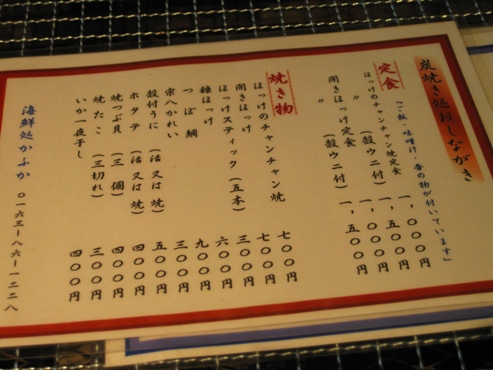 炭焼き処おしながき
定食
「ご飯・味噌汁・香の物が付いています」
ほっけのチャンチャン焼定食 一,〇〇〇円
〃 (殻ウニ付) 一,五〇〇円
開きほっけ定食 一,〇〇〇円
〃 (殻ウニ付) 一,五〇〇円
焼き物
ほっけのチャンチャン焼 七〇〇円
開きほっけ 七〇〇円
ほっけスティック(五本) 三〇〇円
縞ほっけ 六〇〇円
つぼ鯛 九〇〇円
宗八かれい 三〇〇円
殻付うに(活又は焼) 五〇〇円
ホタテ(活又は焼) 四〇〇円
焼つぶ貝(三個) 四〇〇円
焼たこ(三切れ) 三〇〇円
いか一夜干し 四〇〇円
海鮮処かふか 〇一六三ー八六ー一二二八